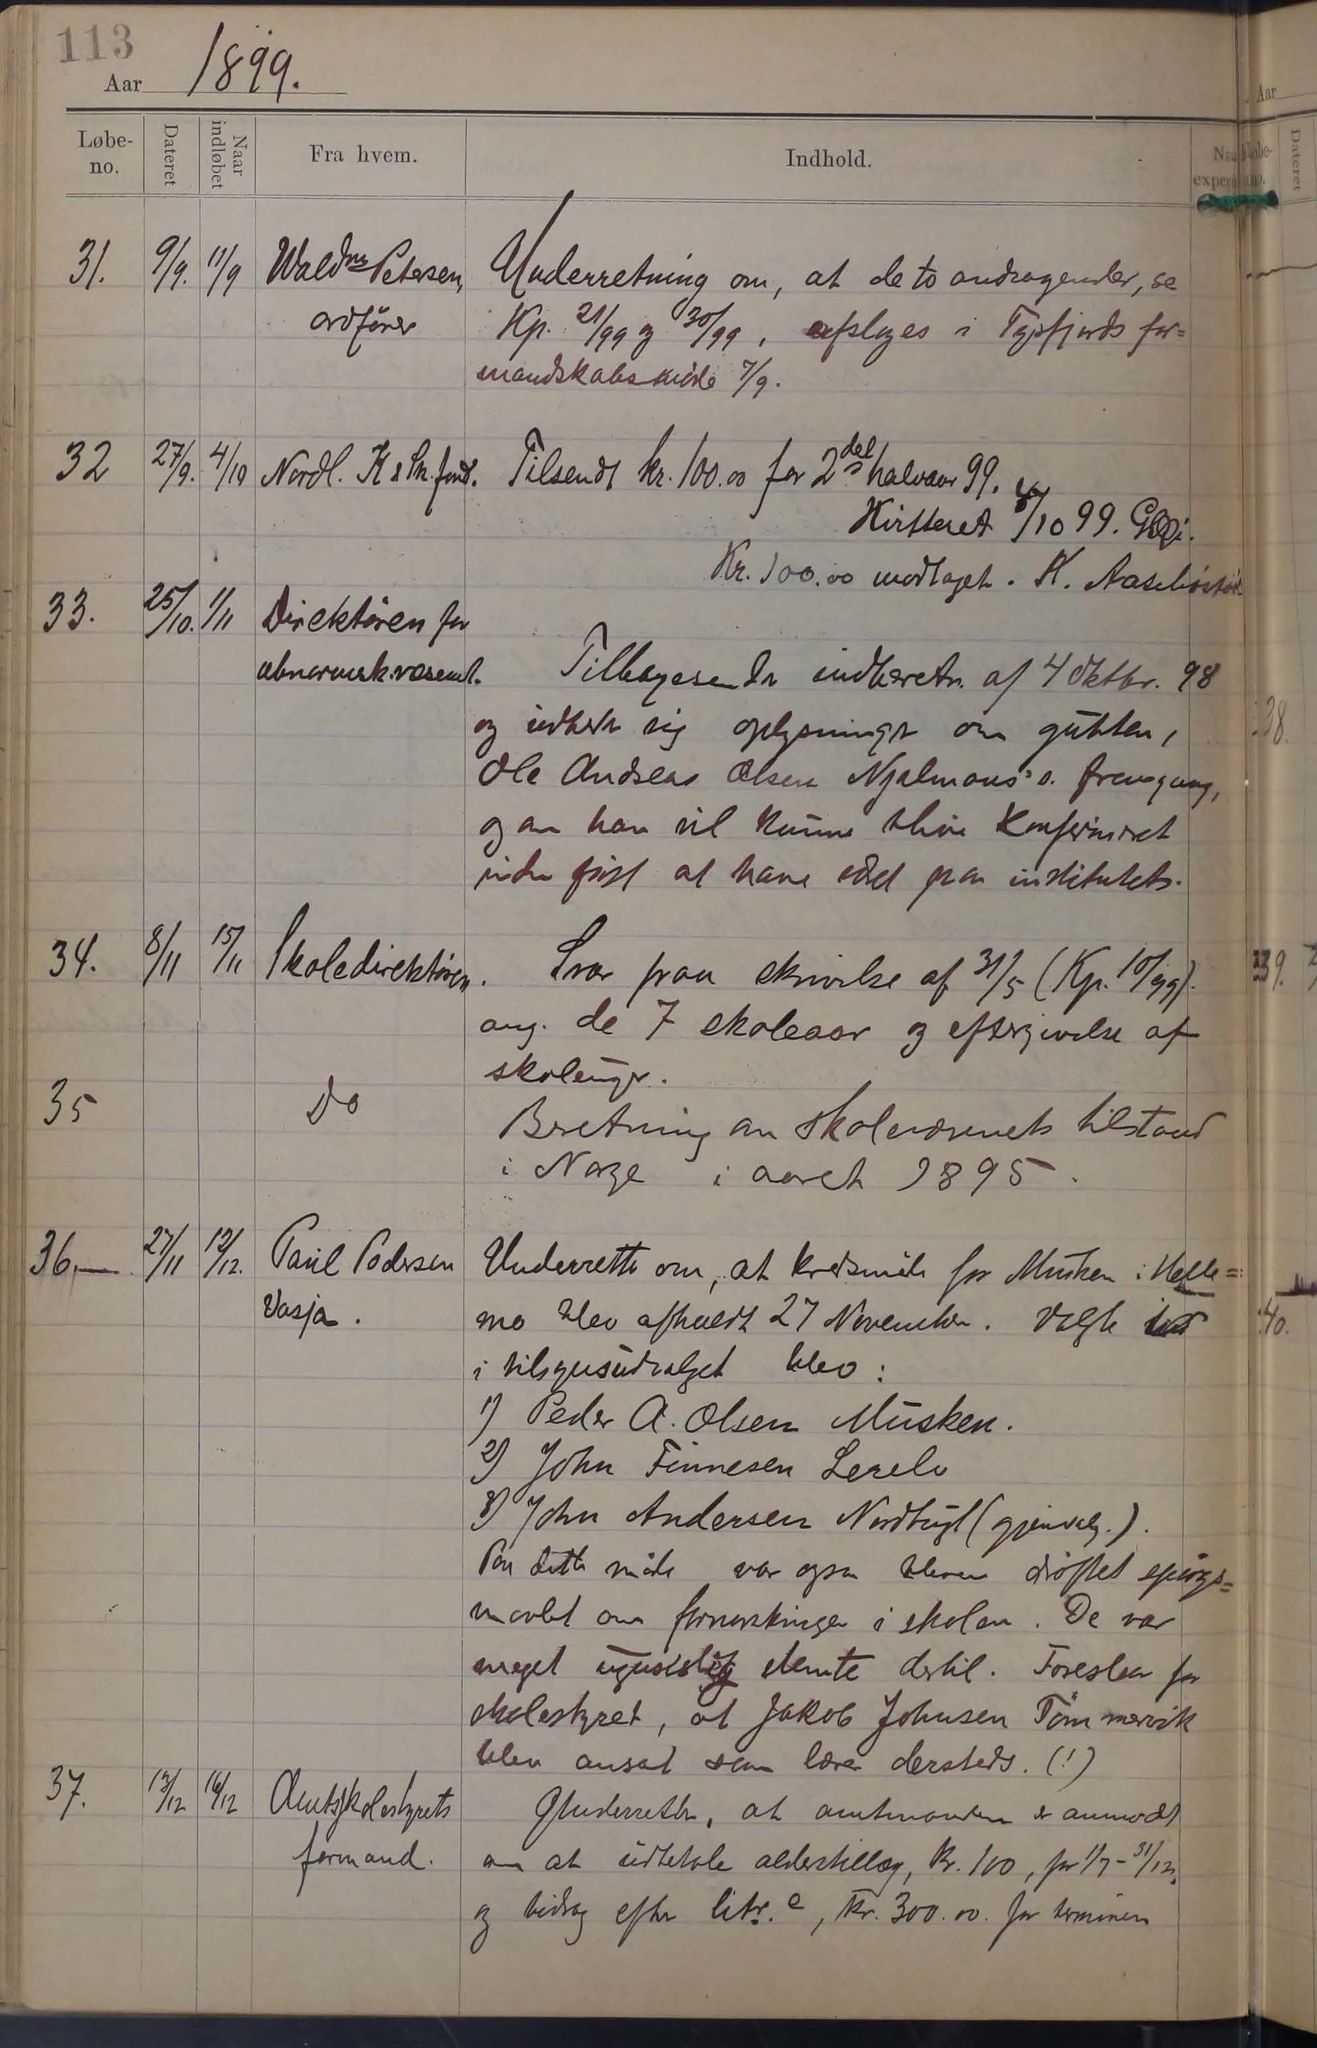 113
Aar 1899.
Løbe-no. Dateret Naar indløbet Fra hvem. Indhold.
31. 9/9. 11/9 Waldmr Petersen, Underretning om, at de to andragender, se
ordfører Kp. 21/99 og 30/99, afslages i Tysfjords for=
mandskabsmøde 7/9.
32 27/9. 4/10 Nordl. K & Sk. fond. Tilsendt kr. 100.00 for 2det halvaar 99.
Kvitteret 8/10 99.
Kr. 100.00 modtaget. K.
33. 25/10. 1/11 Direktøren for
abnormsk.væsenet. Tilbagesender indberetn. af 4 Oktbr. 98
og udbeder sig oplysninger om gutten,
Ole Andreas Olsen Njalmons's fremgang,
og om han vil kunne blive konfirmeret
uden først at have været paa institutet.
34. 8/11 15/11 Skoledirektøren. Svar paa skrivelse af 31/5 (Kp. 10/99).
ang. de 7 skoleaar og eftergivelse af
skoleuger.
35 Do Beretning om skolevæsenets tilstand
i Norge i aaret 1895.
36.— 27/11 12/12. Paul Pedersen Underretter om, at kredsmøde for Musken i Helle=
Vasja. mo blev afholdt 27 November. Valgte
i tilsynsudvalget blev:
1) Peder A. Olsen Musken.
2) John Finnesen
3) John Andersen Nordbugt (gjenvalg.).
Paa dette møde var ogsaa bleven drøftet spørgs=
maalet om fornorskningen i skolen. De var
meget ugunstig stemte dertil. Foreslaar for
skolestyret, at Jakob Johnsen Tømmervik
blev ansat som lærer dersteds. (!)
37. 12/12 16/12 Amtsskolestyrets Underretter, at amtmanden er anmodet
formand. om at udbetale alderstillæg, kr. 100, for 1/7 - 31/12,
og bidrag efter litr. e, kr. 300.00. for terminen